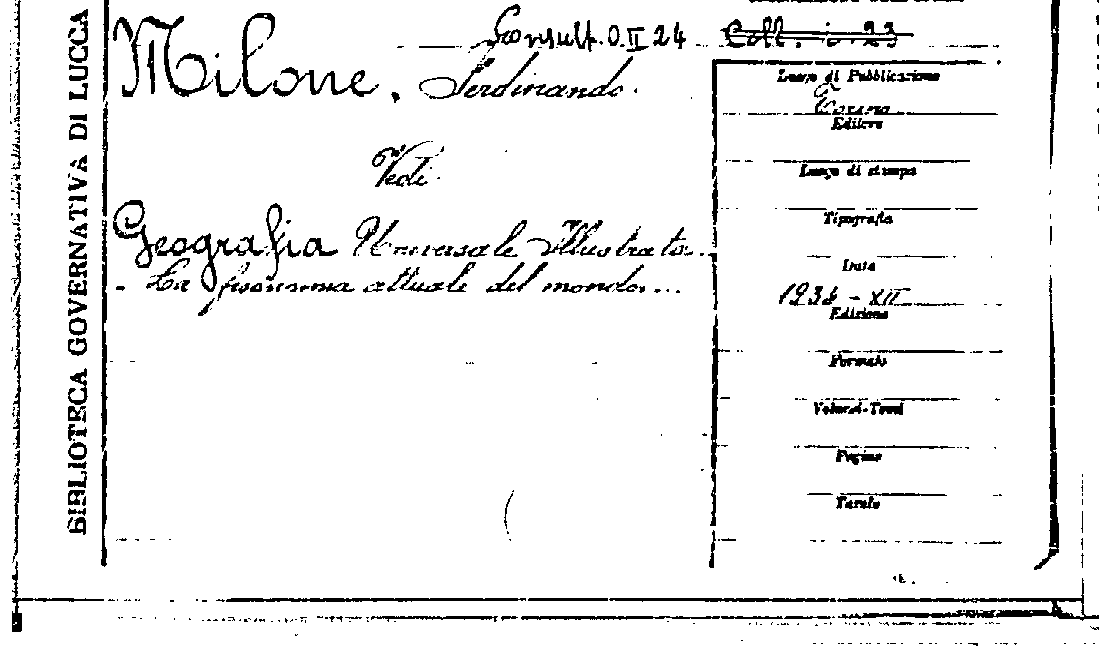 BIBLIOTECA GOVERNATIVA DI LUCCA
Consult. O. II 24
Coll. 23
Milone, Ferdinando.
Vedi
Geografia Universale Illustrata.
- La fisionomia attuale del mondo...
Luogo di Pubblicazione
Torino
Editore
Luogo di stampa
Tipografia
Data
1934 - XII
Edizione
Formato
Volumi-Tomi
Pagine
Tavole